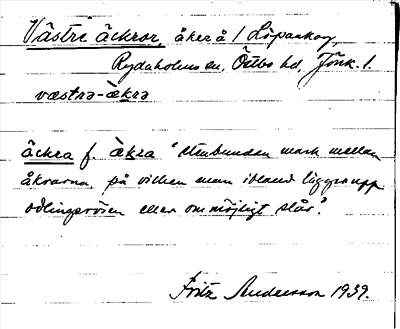 Västre äckror, åker å 1 Löpaskog,
Rydaholms sn, Östbo hd, Jönk. l.
væstrə-ɛ̀krə
äckra f. ɛ̀kra "Stenbunden mark mellan
åkrarna på vilken man ibland lägger upp
odlingsrösen eller om möjligt slår".
Fritz Andersson 1939.